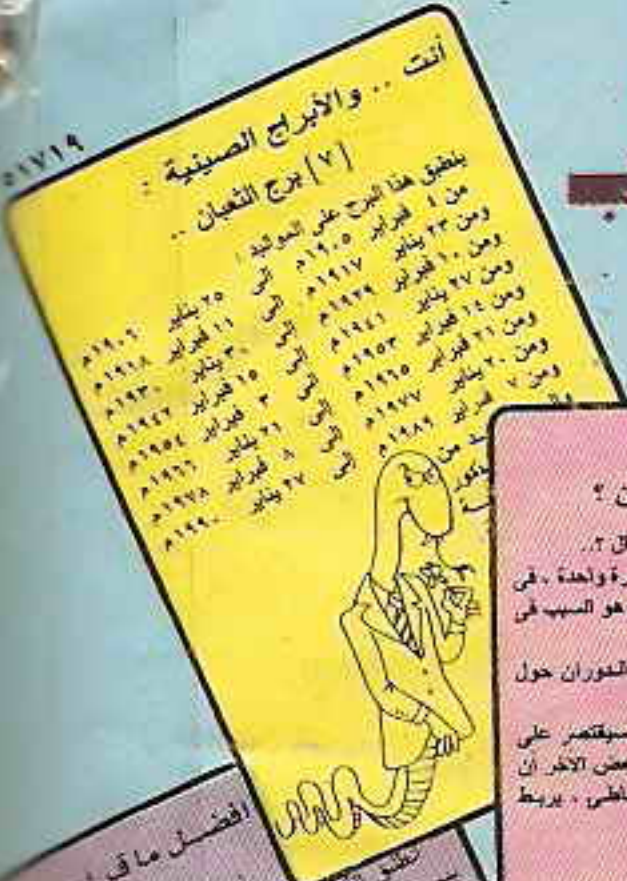 ٥١٧١٩
أنت .. والأبراج الصينية :
[٧] برج الثعبان ..
ينطبق هذا البرج على المواليد :
من ٤ فبراير ١٩٠٥م إلى ٢٥ يناير ١٩٠٦م
ومن ٢٣ يناير ١٩١٧م إلى ١١ فبراير ١٩١٨م
ومن ١٠ فبراير ١٩٢٩م إلى ٣٠ يناير ١٩٣٠م
ومن ٢٧ يناير ١٩٤١م إلى ١٥ فبراير ١٩٤٢م
ومن ١٤ فبراير ١٩٥٣م إلى ٣ فبراير ١٩٥٤م
ومن ٢١ فبراير ١٩٦٥م إلى ٢١ يناير ١٩٦٦م
ومن ٢٠ يناير ١٩٧٧م إلى ٨ فبراير ١٩٧٨م
ومن ٧ فبراير ١٩٨٩م إلى ٢٧ يناير ١٩٩٠م
ن ؟
ال ؟..
رة واحدة ، فى
هو السبب فى
الدوران حول
سيقتصر على
بعض الآخر أن
اطى ، يربط
أفضل ما قر